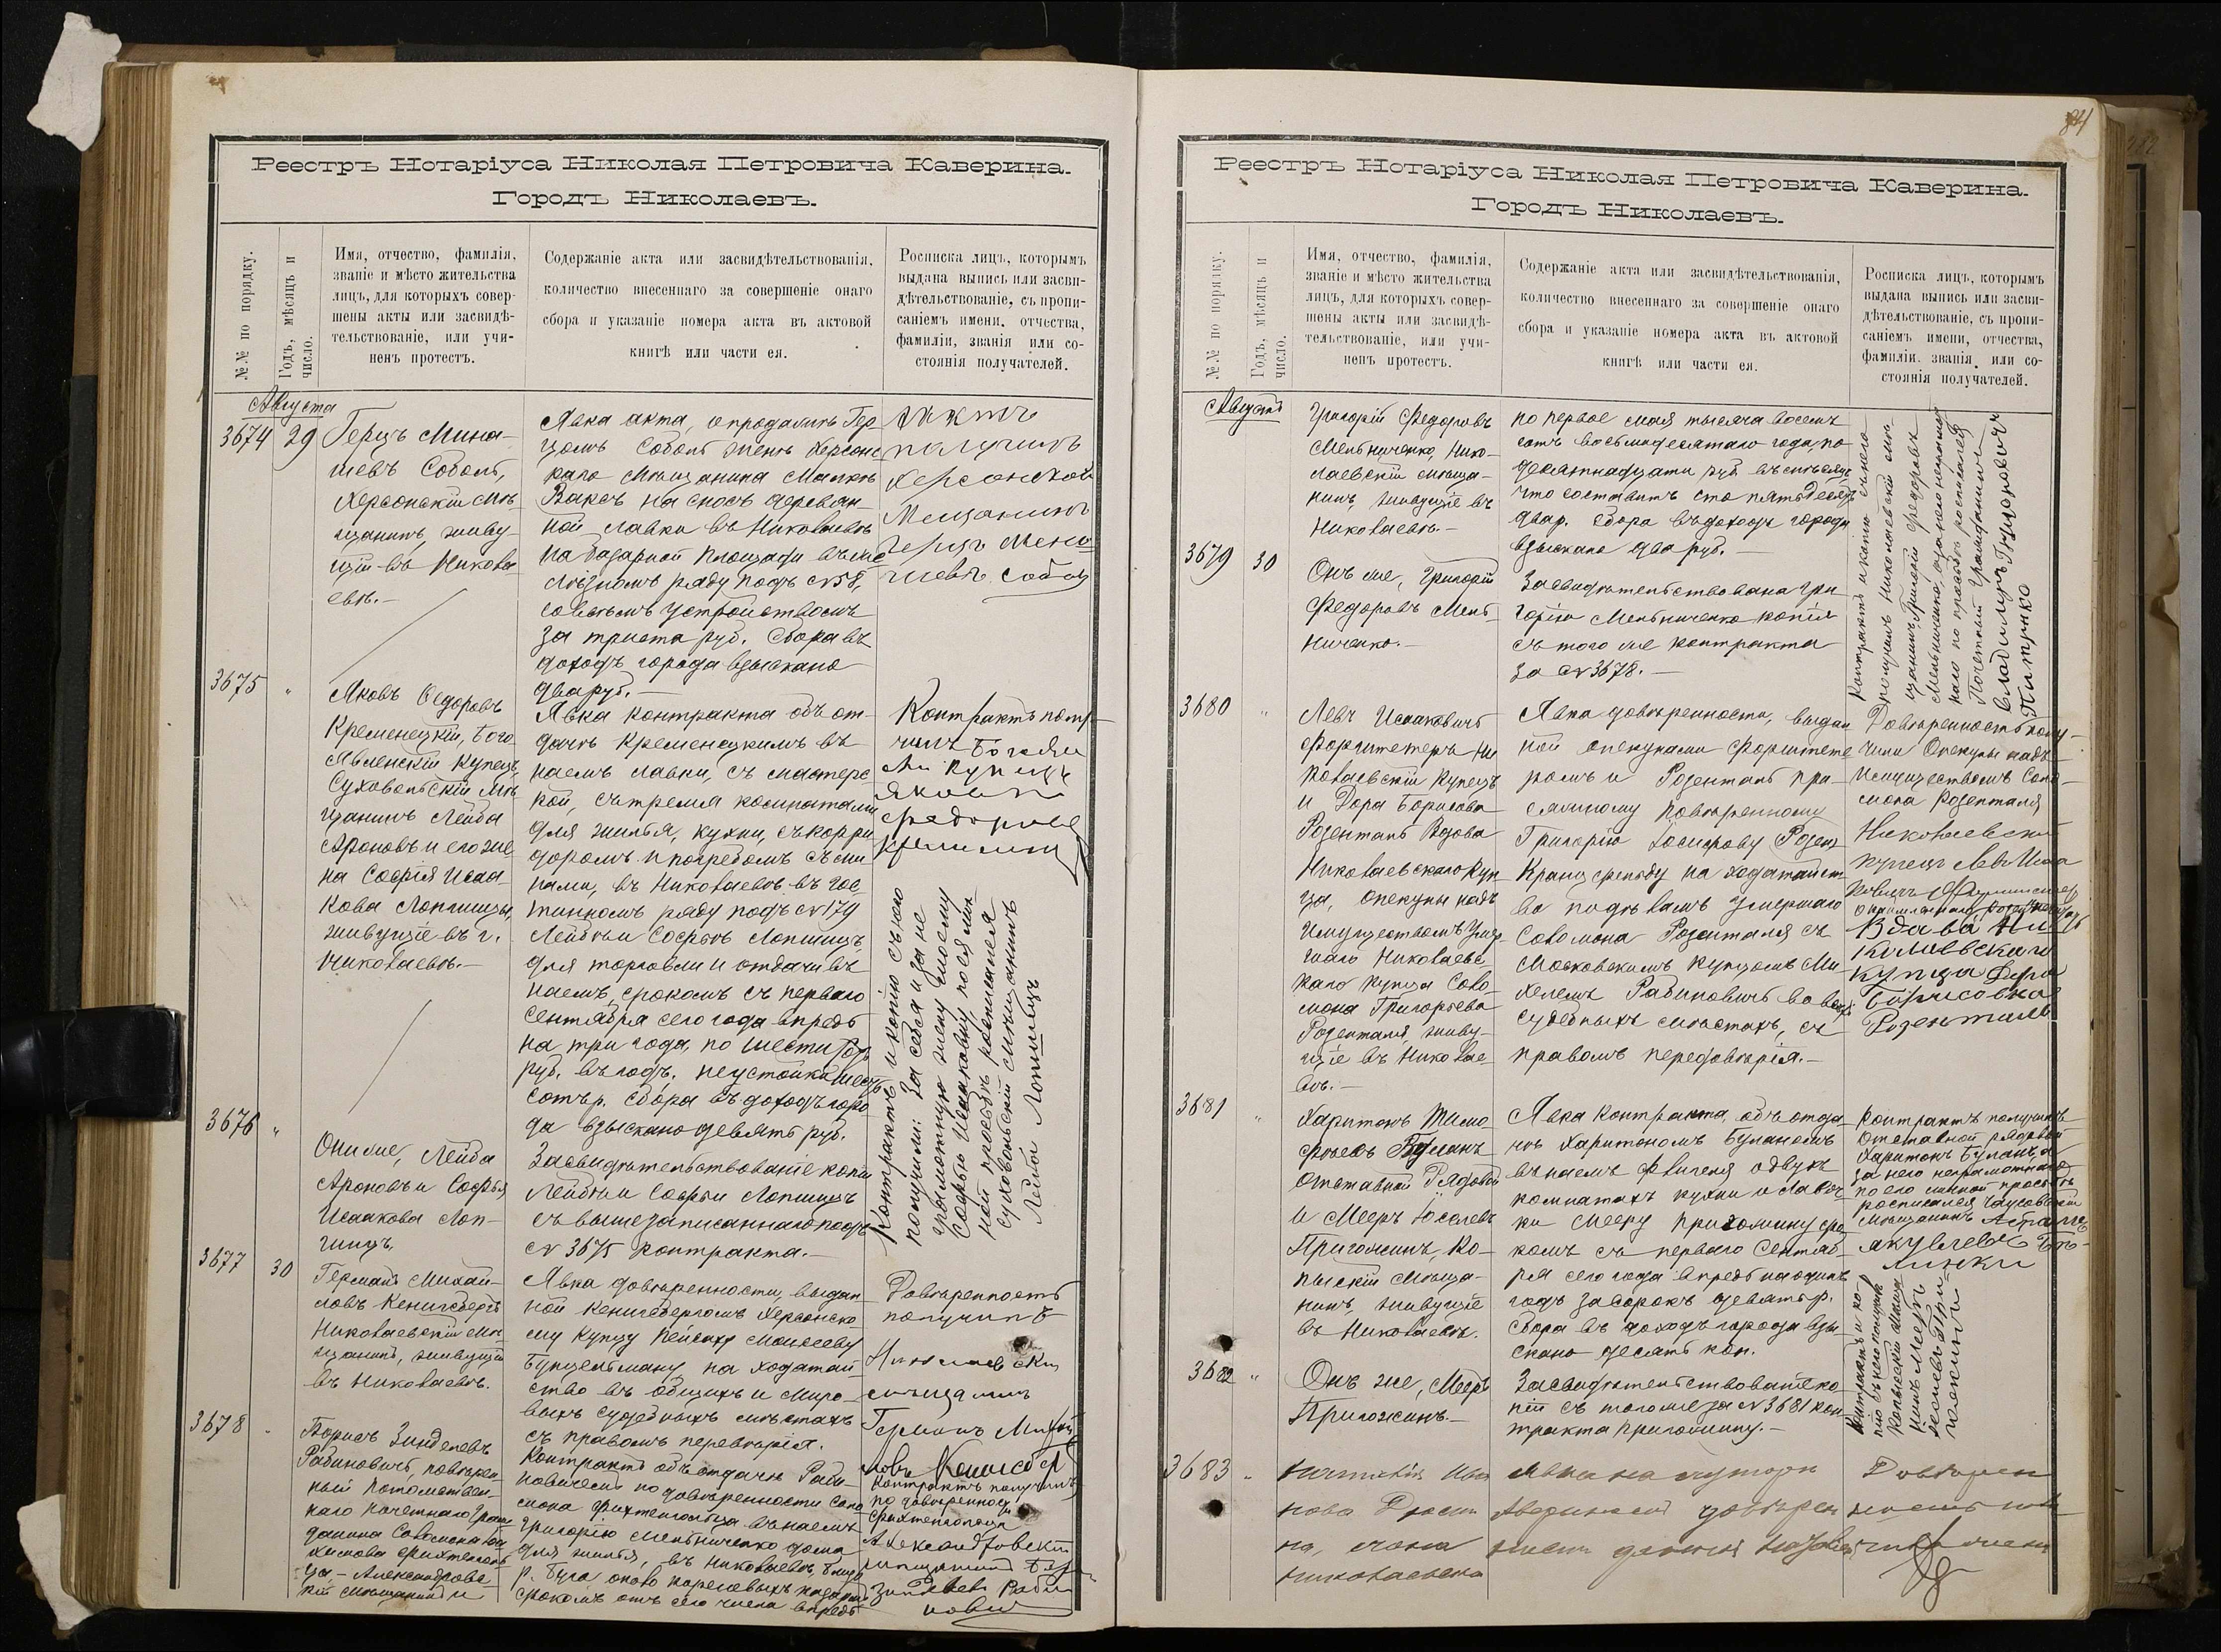 Реестръ Нотаріуса Николая Петровича Каверина.
Городъ Николаевъ.
№№ по порядку.
Годъ, мѣсяцъ и
число.
Имя, отчество, фамилія,
званіе и мѣсто жительства
лицъ, для которыхъ совер-
шены акты или засвидѣ-
тельствованіе, или учи-
ненъ протестъ.
Содержаніе акта или засвидѣтельствованія,
количество внесеннаго за совершеніе онаго
сбора и указаніе номера акта въ актовой
книгѣ или части ея.
Росписка лицъ, которымъ
выдана выпись или засви-
дѣтельствованіе, съ пропи-
саніемъ имени, отчества,
фамиліи, званія или со-
стоянія получателей.
Августа
3674 29
Герцъ Мина-
шевъ Соболь,
Херсонскій мѣ-
щанинъ, живу-
щій въ Никола
евѣ.
Явка акта, о продажѣ Гер
цомъ Соболь женѣ Херсонс
каго мѣщанина Малкѣ
Ваксъ на сносъ деревян-
ной лавки въ Николаевѣ
на базарной площади въ же
лѣзномъ ряду подъ № 8,
со всѣмъ устройствомъ
за триста руб. Сбора въ
доходъ города взыскано
два руб.
получилъ
Херсонской
Мещанинъ
Герцъ Мена
шевъ Соболь
3675 "
Яковъ Ѳедоровъ
Кременецкій, Бого
явленскій купецъ,
Суховольскій мѣ
щанинъ Лейба
Ароновъ и его же-
на Софія Исаа-
кова Лопшицы,
живущіе въ г.
Николаевѣ.
Явка контракта объ от-
дачѣ Кременецкимъ въ
наемъ лавки, съ мастерс
кой, съ тремя комнатами
для жилья, кухни, съ корри
доромъ и погребомъ съ ни
нами, въ Николаевѣ въ гос
тинномъ ряду подъ № 179
Лейбѣ и Софьѣ Лопшицъ
для торговли и отдачи въ
наемъ, срокомъ съ перваго
сентября сего года впредь
на три года, по шести сотъ
руб. въ годъ, неустойки шесть
сотъ р. Сбора въ доходъ горо
да взыскано девять руб.
Контрактъ полу-
чилъ
купецъ
Яковъ
Федоровъ
Контрактъ и копію съ него
получили: За себя и за не
грамотную жену мою
Софью Исааковну, по ея лич
ной просьбѣ росписался
Суховольскій мѣщанинъ
Лейба Лопшицъ
3676 "
Они же, Лейба
Ароновъ и Софья
Исаакова Лоп-
шицъ.
Засвидѣтельствованіе копіи
Лейбѣ и Софьи Лопшицъ
съ вышезаписаннаго подъ
№ 3675 контракта.
3677 30
Германъ Михай-
ловъ Кенигсбергъ
Николаевскій мѣ-
щанинъ, живущій
въ Николаевѣ.
Явка довѣренности, выдан
ной Кенигсбергомъ Херсонско
му купцу Пейсаху Моисееву
Бунцельману на ходатай
ство въ общихъ и миро-
выхъ судебныхъ мѣстахъ
съ правомъ перевѣрія.
Довѣренность
получилъ
Николаевскій
мѣщанинъ
Германъ Михай
ловъ Кенигсбергъ
3678 "
Борисъ Зинделевъ
Рабиновичъ, повѣрен-
ный потомствен-
наго почетнаго граж
данина Соломона
Фихтенгольца
Александровс
кій мѣщанинъ и
Контрактъ объ отдачѣ Раби-
новичемъ по довѣренности Соло
мона Фихтенгольца въ наемъ
Григорію Мельниченко дома
для жилья, въ Николаевѣ близь
р. Буга около
срокомъ отъ сего числа впредь
контрактъ получилъ
по довѣренности
Фихтенгольца
Александровскій
мѣщанинъ
Зинделевъ Раби
новичъ
84
Реестръ Нотаріуса Николая Петровича Каверина.
Городъ Николаевъ.
№№ по порядку.
Годъ, мѣсяцъ и
число.
Имя, отчество, фамилія,
званіе и мѣсто жительства
лицъ, для которыхъ совер-
шены акты или засвидѣ-
тельствованіе, или учи-
ненъ протестъ.
Содержаніе акта или засвидѣтельствованія,
количество внесеннаго за совершеніе онаго
сбора и указаніе номера акта въ актовой
книгѣ или части ея.
Росписка лицъ, которымъ
выдана выпись или засви-
дѣтельствованіе, съ пропи-
саніемъ имени, отчества,
фамиліи, званія или со-
стоянія получателей.
Августъ
Григорій Федоровъ
Мельниченко, Нико-
лаевскій мѣща-
нинъ, живущіе въ
Николаевѣ.
по первое мая тысяча восемь
сотъ восьмидесятаго года, по
девятнадцати руб въ мѣсяцъ,
что составитъ сто пятьдесятъ
два р. Сбора въ доходъ города
взыскано два руб.
Контрактъ и копію съ него
получилъ Николаевскій мѣ-
щанинъ Григорій Федоровъ
Мельниченко, а за неграмот
наго по просьбѣ росписался
Почетный Гражданинъ
Владиміръ
3679 30
Онъ же, Григорій
Федоровъ Мель-
ниченко.
Засвидѣтельствована Гри
горію Мельниченко копія
съ того же контракта
за № 3678.
3680 "
Левъ Исааковичъ
Форштетеръ Ни
колаевскій купецъ
и Дора Борисова
Розенталь вдова
Николаевскаго куп
ца, опекуны надъ
имуществомъ умер-
шаго Николаевс-
каго купца Соло-
мона Григорьева
Розенталя, живу-
щіе въ Николае-
вѣ.
Явка довѣренности, выдан
ной опекунами Форштете
ромъ и Розенталь при-
сяжному повѣренному
Григорію Іосифову Розен
кранцъ на ходатайст
во по дѣламъ умершаго
Соломона Розенталя съ
Московскимъ купцомъ Ми-
хелемъ Рабиновичъ во всѣхъ
судебныхъ мѣстахъ, съ
правомъ передовѣрія.
Довѣренность полу-
чили Опекуны надъ
Имуществомъ Соло-
мона Розенталя
Николаевскій
купецъ Левъ Исаа
ковичъ
Вдова Ни
колаевскаго
купца Дора
Борисовна
Розенталь
3681 "
Харитонъ Тимо
фѣевъ Буланъ
Отставной рядовой
и Мееръ Іоселевъ
Пригожинъ, Ко-
пысскій мѣща-
нинъ, живущіе
въ Николаевѣ.
Явка контракта, объ отда
чѣ Харитономъ Буланомъ
въ наемъ флигеля о двухъ
комнатахъ кухни и лавоч
ки Мееру Пригожину сро
комъ съ перваго Сентяб-
ря сего года впредь на одинъ
годъ за сорокъ девять р.
Сбора въ доходъ города взы
скано десять коп.
Контрактъ получилъ
Отставной рядовой
Харитонъ Буланъ, а
за него неграмотнаго
по его личной просьбѣ
росписался
мѣщанинъ
Контрактъ и ко-
пію съ него получилъ
Копысскій мѣща
нинъ Мееръ
Іоселевъ При-
гожинъ
3682 "
Онъ же, Мееръ
Пригожинъ.
Засвидѣтельствованіе ко-
піи съ того же за № 3681 кон
тракта Пригожину.
3683 "
Ива
нова
на, жена
Николаевска
Довѣрен
ность